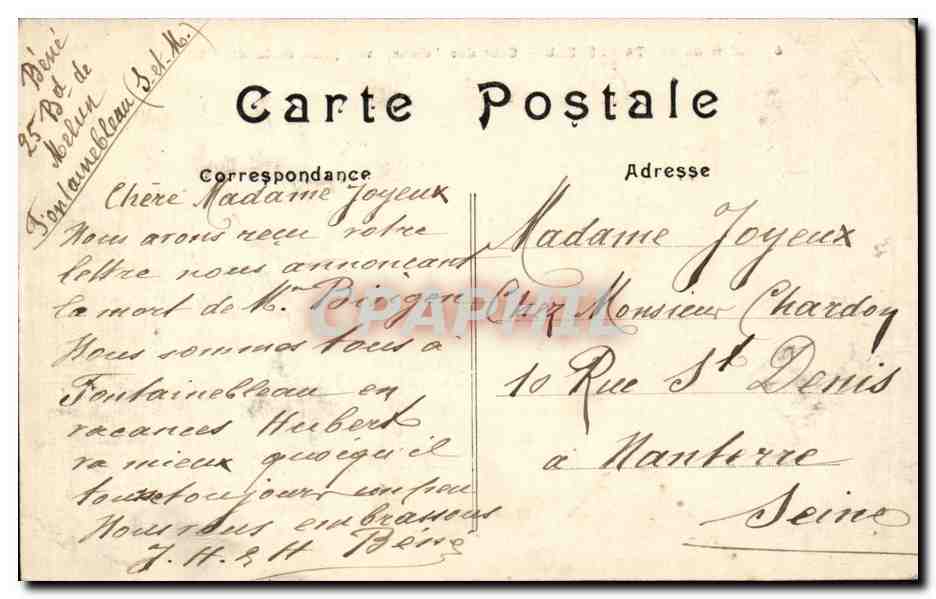 Béné
25 Bd de
Melun
Fontainebleau (S et M.)
Carte Postale
Correspondance
Adresse
Chère Madame Joyeux
Nous avons reçu votre
lettre nous annonçant
la mort de Mr
Nous sommes tous à
Fontainebleau en
vacances Hubert
va mieux quoiqu'il
tousse toujours un peu
Nous vous embrassons
J. H. & H Béné
Madame Joyeux
Chez Monsieur Chardon
10 Rue St Denis
à Nanterre
Seine
CPAPHIL